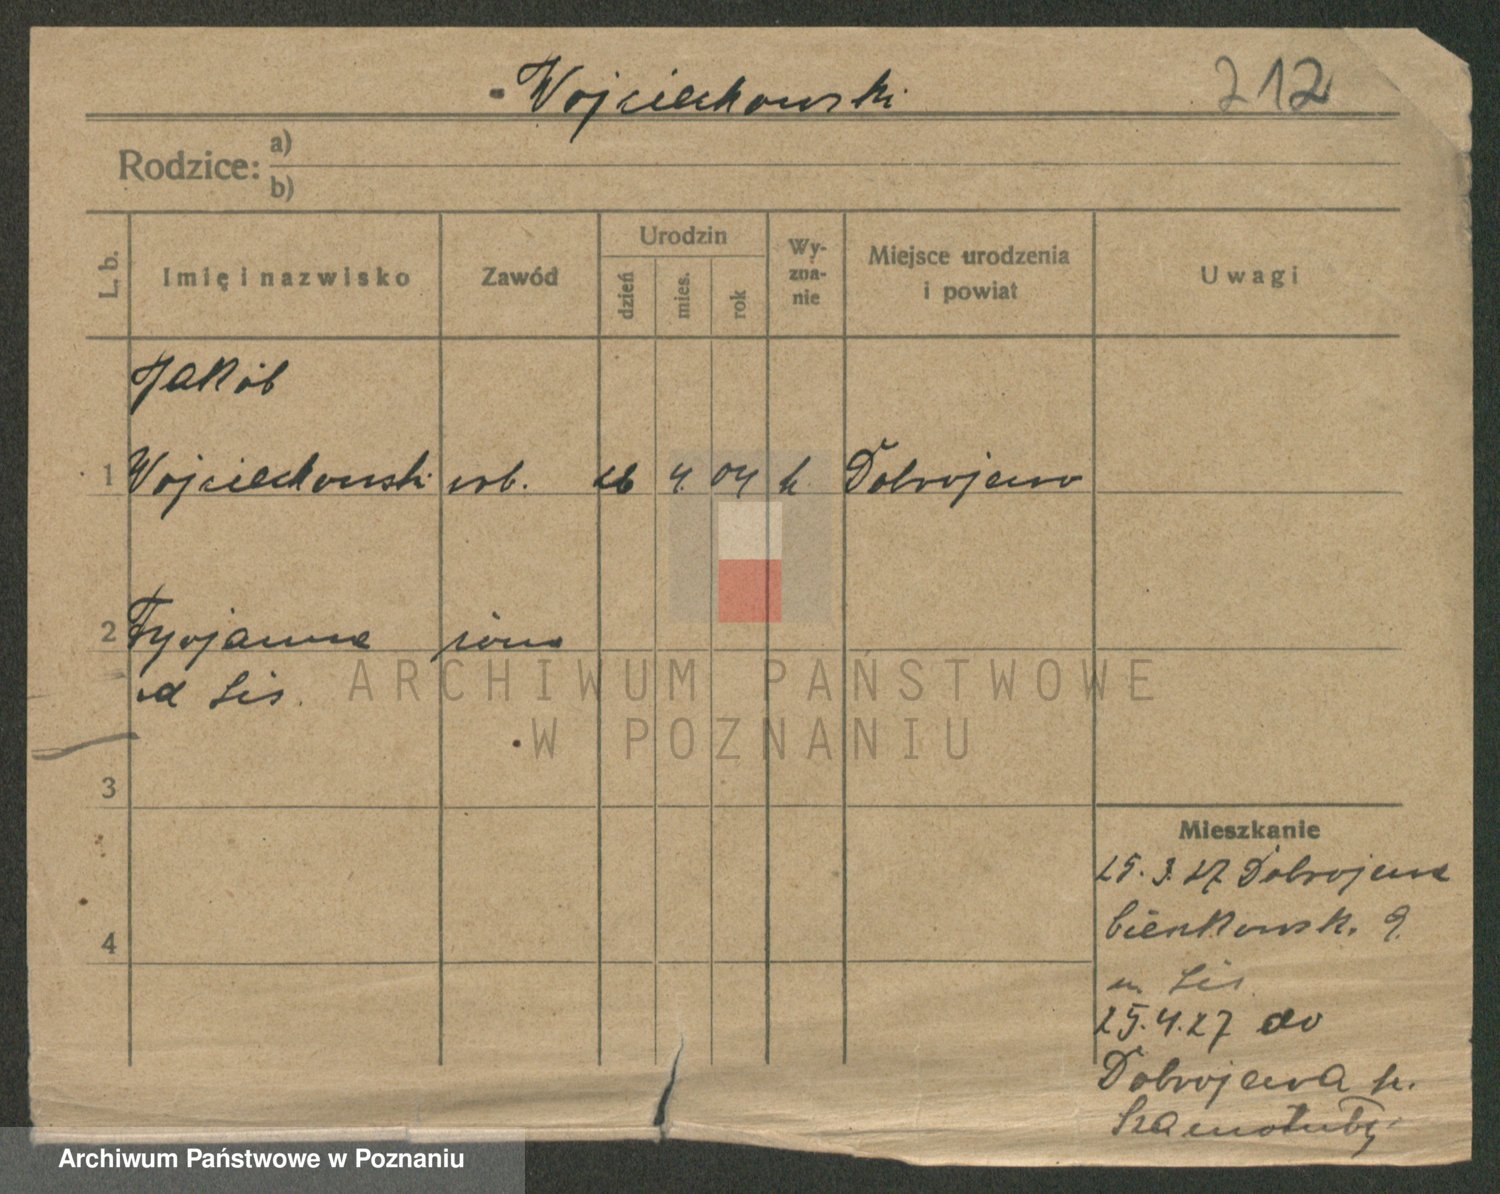 Wojciechowski 212
Rodzice: a)
b)
L. b. Imię i nazwisko Zawód Urodzin dzień mies. rok Wy-zna-nie Miejsce urodzenia i powiat Uwagi
Jakób
1 Wojciechowski rob. 4. 04 k. Dobrojewo
2 żona
Lis.
3
4
Mieszkanie
25. 3. 27 Dobrojewo
9
u. Lis
25. 4. 27 do
Dobrojewa p.
Szamotuły
ARCHIWUM PAŃSTWOWE
W POZNANIU
Archiwum Państwowe w Poznaniu